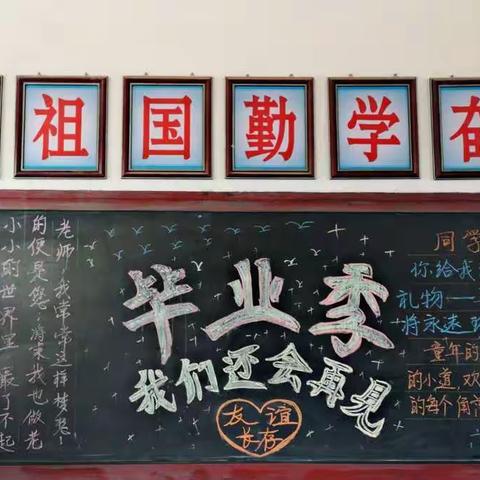 祖国勤学奋
老师！我常常这样梦想！
的便是您，将来我也做老
小小的世界里，最了不起
毕业季
我们还会再见
友谊
长存
同学
你给我
礼物——
将永远
童年的
的小道，欢
的每个角落